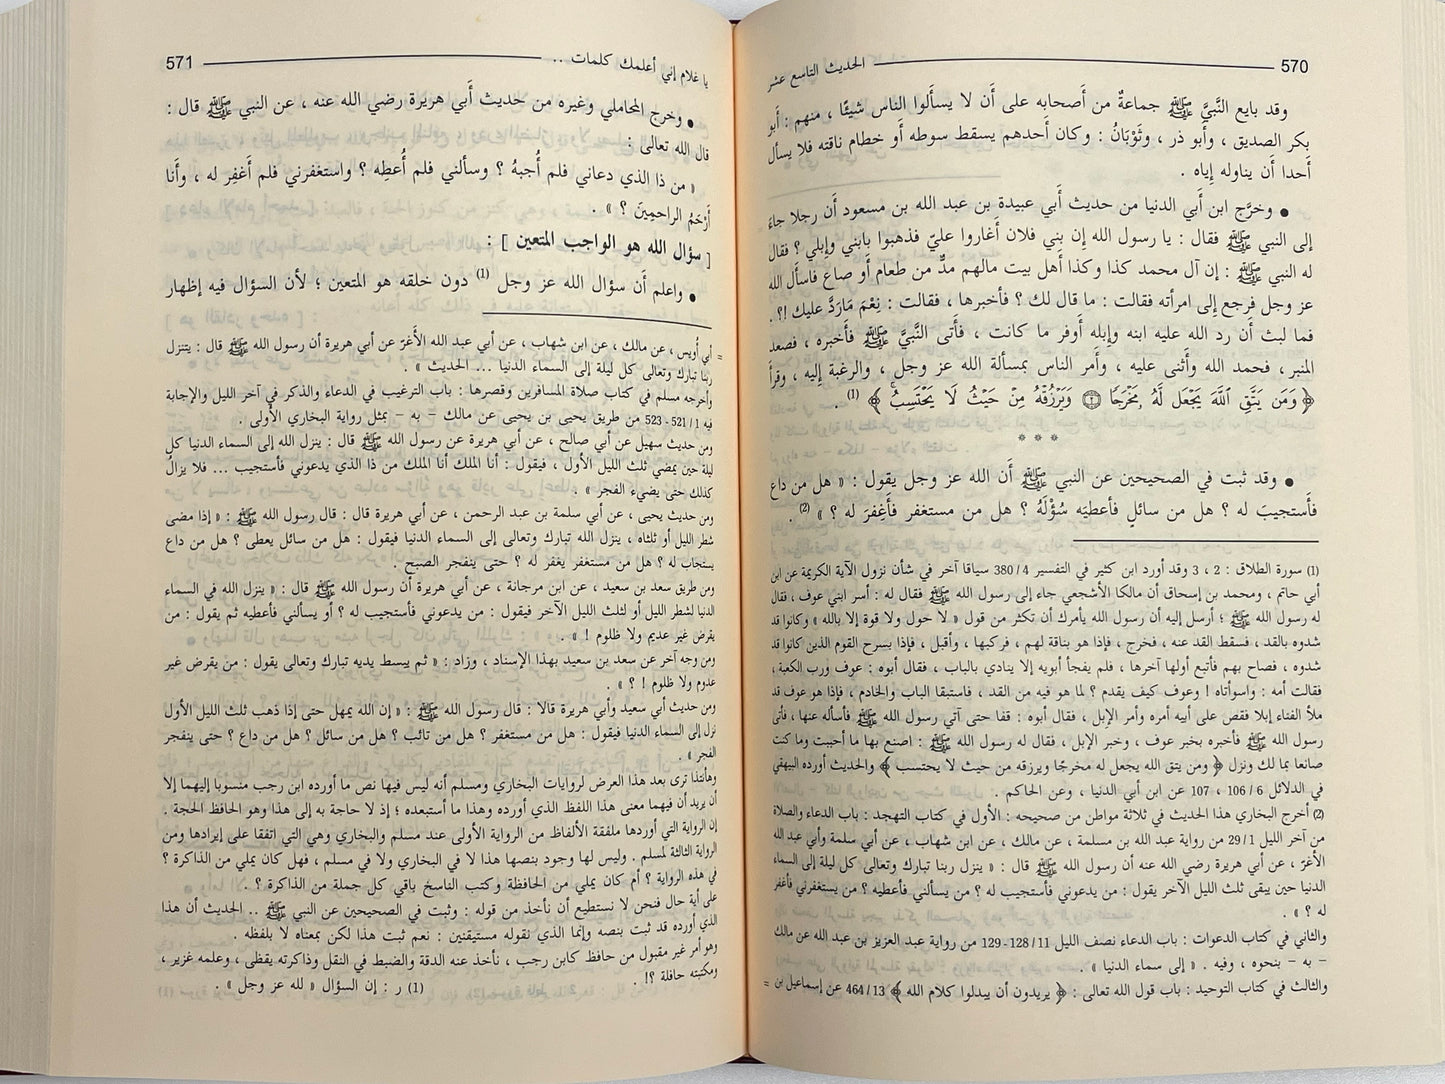 570
الحديث التاسع عشر
وقد بايع النَّبيَّ ﷺ جماعةٌ من أَصحابه على أَن لا يسأَلوا الناس شيئًا ، منهم : أَبو
بكر الصديق ، وأَبو ذر ، وثَوْبَانُ : وكان أَحدهم يسقط سوطه أَو خطام ناقته فلا يسأل
أَحدا أَن يناوله إِياه .
• وخرَّج ابن أَبي الدنيا من حديث أَبي عبيدة بن عبد الله بن مسعود أَن رجلا جاءَ
إلى النبي ﷺ فقال : يا رسول الله إِن بني فلان أَغاروا عليّ فذهبوا بابني وإِبلي ؟ فقال
له النبي ﷺ : إِن آل محمد كذا وكذا أَهل بيت مالهم مدٌّ من طعام أَو صاع فاسأَل الله
عز وجل فرجع إلى امرأته فقالت : ما قال لك ؟ فأخبرها ، فقالت : نِعْمَ مَارَدَّ عليك !؟ .
فما لبث أَن رد الله عليه ابنه وإبله أَوفر ما كانت ، فأتى النَّبيَّ ﷺ فأَخبره ، فصعد
المنبر ، فحمد الله وأَثنى عليه ، وأَمر الناس بمسألة الله عز وجل ، والرغبة إليه ، وقرأَ
﴿ وَمَن يَتَّقِ ٱللَّهَ يَجْعَل لَّهُۥ مَخْرَجًا ۝٢ وَيَرْزُقْهُ مِنْ حَيْثُ لَا يَحْتَسِبُ ﴾ (1) .
* * *
• وقد ثبت في الصحيحين عن النبي ﷺ أَن الله عز وجل يقول : « هل من داع
فأَستجيبَ له ؟ هل من سائلٍ فأعطيَه سُؤْلَهُ ؟ هل من مستغفر فأَغفِرَ له ؟ » (2) .
(1) سورة الطلاق : 2 ، 3 وقد أورد ابن كثير في التفسير 4 / 380 سياقا آخر في شأن نزول الآية الكريمة عن ابن
أبي حاتم ، ومحمد بن إسحاق أن مالكا الأشجعي جاء إلى رسول الله ﷺ فقال له : أسر ابني عوف ، فقال
له رسول الله ﷺ ؛ أرسل إليه أن رسول الله يأمرك أن تكثر من قول « لا حول ولا قوة إلا بالله » وكانوا قد
شدوه بالقد ، فسقط القد عنه ، فخرج ، فإذا هو بناقة لهم ، فركبها ، وأقبل ، فإذا بسرح القوم الذين كانوا قد
شدوه ، فصاح بهم فأتبع أولها آخرها ، فلم يفجأ أبويه إلا ينادي بالباب ، فقال أبوه : عوف ورب الكعبة ،
فقالت أمه : واسوأتاه ! وعوف كيف يقدم ؟ لما هو فيه من القد ، فاستبقا الباب والخادم ، فإذا هو عوف قد
ملأ الفناء إبلا فقص على أبيه أمره وأمر الإبل ، فقال أبوه : قفا حتى آتي رسول الله ﷺ فأسأله عنها ، فأتى
رسول الله ﷺ فأخبره بخبر عوف ، وخبر الإبل ، فقال له رسول الله ﷺ : اصنع بها ما أحببت وما كنت
صانعا بما لك ونزل ﴿ ومن يتق الله يجعل له مخرجًا ويرزقه من حيث لا يحتسب ﴾ والحديث أورده البيهقي
في الدلائل 6 / 106 ، 107 عن ابن أبي الدنيا ، وعن الحاكم .
(2) أخرج البخاري هذا الحديث في ثلاثة مواطن من صحيحه : الأول في كتاب التهجد : باب الدعاء والصلاة
من آخر الليل 1 / 29 من رواية عبد الله بن مسلمة ، عن مالك ، عن ابن شهاب ، عن أبي سلمة وأبي عبد الله
الأغرّ ، عن أبي هريرة رضي الله عنه أن رسول الله ﷺ قال : « ينزل ربنا تبارك وتعالى كل ليلة إلى السماء
الدنيا حين يبقى ثلث الليل الآخر يقول : من يدعوني فأستجيب له ؟ من يسألني فأعطيه ؟ من يستغفرني فأغفر
له ؟ » .
والثاني في كتاب الدعوات : باب الدعاء نصف الليل 11 / 128 - 129 من رواية عبد العزيز بن عبد الله عن مالك
– به – بنحوه ، وفيه . « إلى سماء الدنيا » .
والثالث في كتاب التوحيد : باب قول الله تعالى : ﴿ يريدون أن يبدلوا كلام الله ﴾ 13 / 464 عن إسماعيل بن =
يا غلام إني أعلمك كلمات ..
571
• وخرج المحاملي وغيره من حديث أَبي هريرة رضي الله عنه ، عن النبي ﷺ قال :
قال الله تعالى :
« من ذا الذي دعاني فلم أُجبهُ ؟ وسألني فلم أُعطِه ؟ واستغفرني فلم أَغفِر له ، وأَنا
أَرْحَمُ الراحمِينَ ؟ » .
[ سؤال الله هو الواجب المتعين ] :
• واعلم أَن سؤال الله عز وجل (1) دون خلقه هو المتعين ؛ لأن السؤال فيه إظهار
= أبي أويس ، عن مالك ، عن ابن شهاب ، عن أبي عبد الله الأغرّ عن أبي هريرة أن رسول الله ﷺ قال : يتنزل
ربنا تبارك وتعالى كل ليلة إلى السماء الدنيا ... الحديث » .
وأخرجه مسلم في كتاب صلاة المسافرين وقصرها : باب الترغيب في الدعاء والذكر في آخر الليل والإجابة
فيه 1 / 521 - 523 من طريق يحيى بن يحيى عن مالك – به – بمثل رواية البخاري الأولى .
ومن حديث سهيل عن أبي صالح ، عن أبي هريرة عن رسول الله ﷺ قال : ينزل الله إلى السماء الدنيا كل
ليلة حين يمضي ثلث الليل الأول ، فيقول : أنا الملك أنا الملك من ذا الذي يدعوني فأستجيب ... فلا يزالُ
كذلك حتى يضيء الفجر » .
ومن حديث يحيى ، عن أبي سلمة بن عبد الرحمن ، عن أبي هريرة قال : قال رسول الله ﷺ : « إذا مضى
شطر الليل أو ثلثاه ، ينزل الله تبارك وتعالى إلى السماء الدنيا فيقول : هل من سائل يعطى ؟ هل من داع
يستجاب له ؟ هل من مستغفر يغفر له ؟ حتى ينفجر الصبح .
ومن طريق سعد بن سعيد ، عن ابن مرجانة ، عن أبي هريرة أن رسول الله ﷺ قال : « ينزل الله في السماء
الدنيا لشطر الليل أو لثلث الليل الآخر فيقول : من يدعوني فأستجيب له ؟ أو يسألني فأعطيه ثم يقول : من
يقرض غير عديم ولا ظلوم ! » .
ومن وجه آخر عن سعد بن سعيد بهذا الإسناد ، وزاد : « ثم يبسط يديه تبارك وتعالى يقول : من يقرض غير
عدوم ولا ظلوم ! ؟ » .
ومن حديث أبي سعيد وأبي هريرة قالا : قال رسول الله ﷺ : « إن الله يمهل حتى إذا ذهب ثلث الليل الأول
نزل إلى السماء الدنيا فيقول : هل من مستغفر ؟ هل من تائب ؟ هل من سائل ؟ هل من داع ؟ حتى ينفجر
الفجر » .
وهأنتذا ترى بعد هذا العرض لروايات البخاري ومسلم أنه ليس فيها نص ما أورده ابن رجب منسوبا إليهما إلا
أن يريد أن فيهما معنى هذا اللفظ الذي أورده وهذا ما أستبعده ؛ إذ لا حاجة به إلى هذا وهو الحافظ الحجة .
إن الرواية التي أوردها ملفقة الألفاظ من الرواية الأولى عند مسلم والبخاري وهي التي اتفقا على إيرادها ومن
الرواية الثالثة لمسلم . وليس لها وجود بنصها هذا لا في البخاري ولا في مسلم ، فهل كان يملي من الذاكرة ؟
في هذه الرواية ؟ أم كان يملي من الحافظة وكتب الناسخ باقي كل جملة من الذاكرة ؟ .
على أية حال فنحن لا نستطيع أن نأخذ من قوله : وثبت في الصحيحين عن النبي ﷺ .. الحديث أن هذا
الذي أورده قد ثبت بنصه وإنما الذي نقوله مستيقنين : نعم ثبت هذا لكن بمعناه لا بلفظه .
وهو أمر غير مقبول من حافظ كابن رجب ، نأخذ عنه الدقة والضبط في النقل وذاكرته يقظى ، وعلمه غزير ،
ومكتبته حافلة ؟! .
(1) ر : إن السؤال « لله عز وجل » .